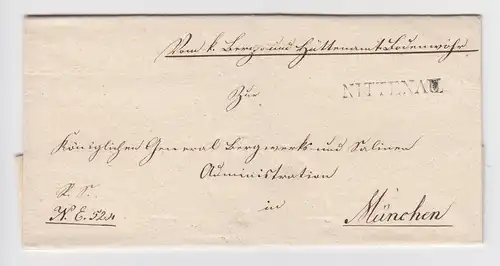 Vom k. Berg- und Hüttenamt Bodenwöhr
NITTENAU
Zur
Königlichen General Bergwerks und Salinen
Administration
in
München
R. S.
N. E. 524